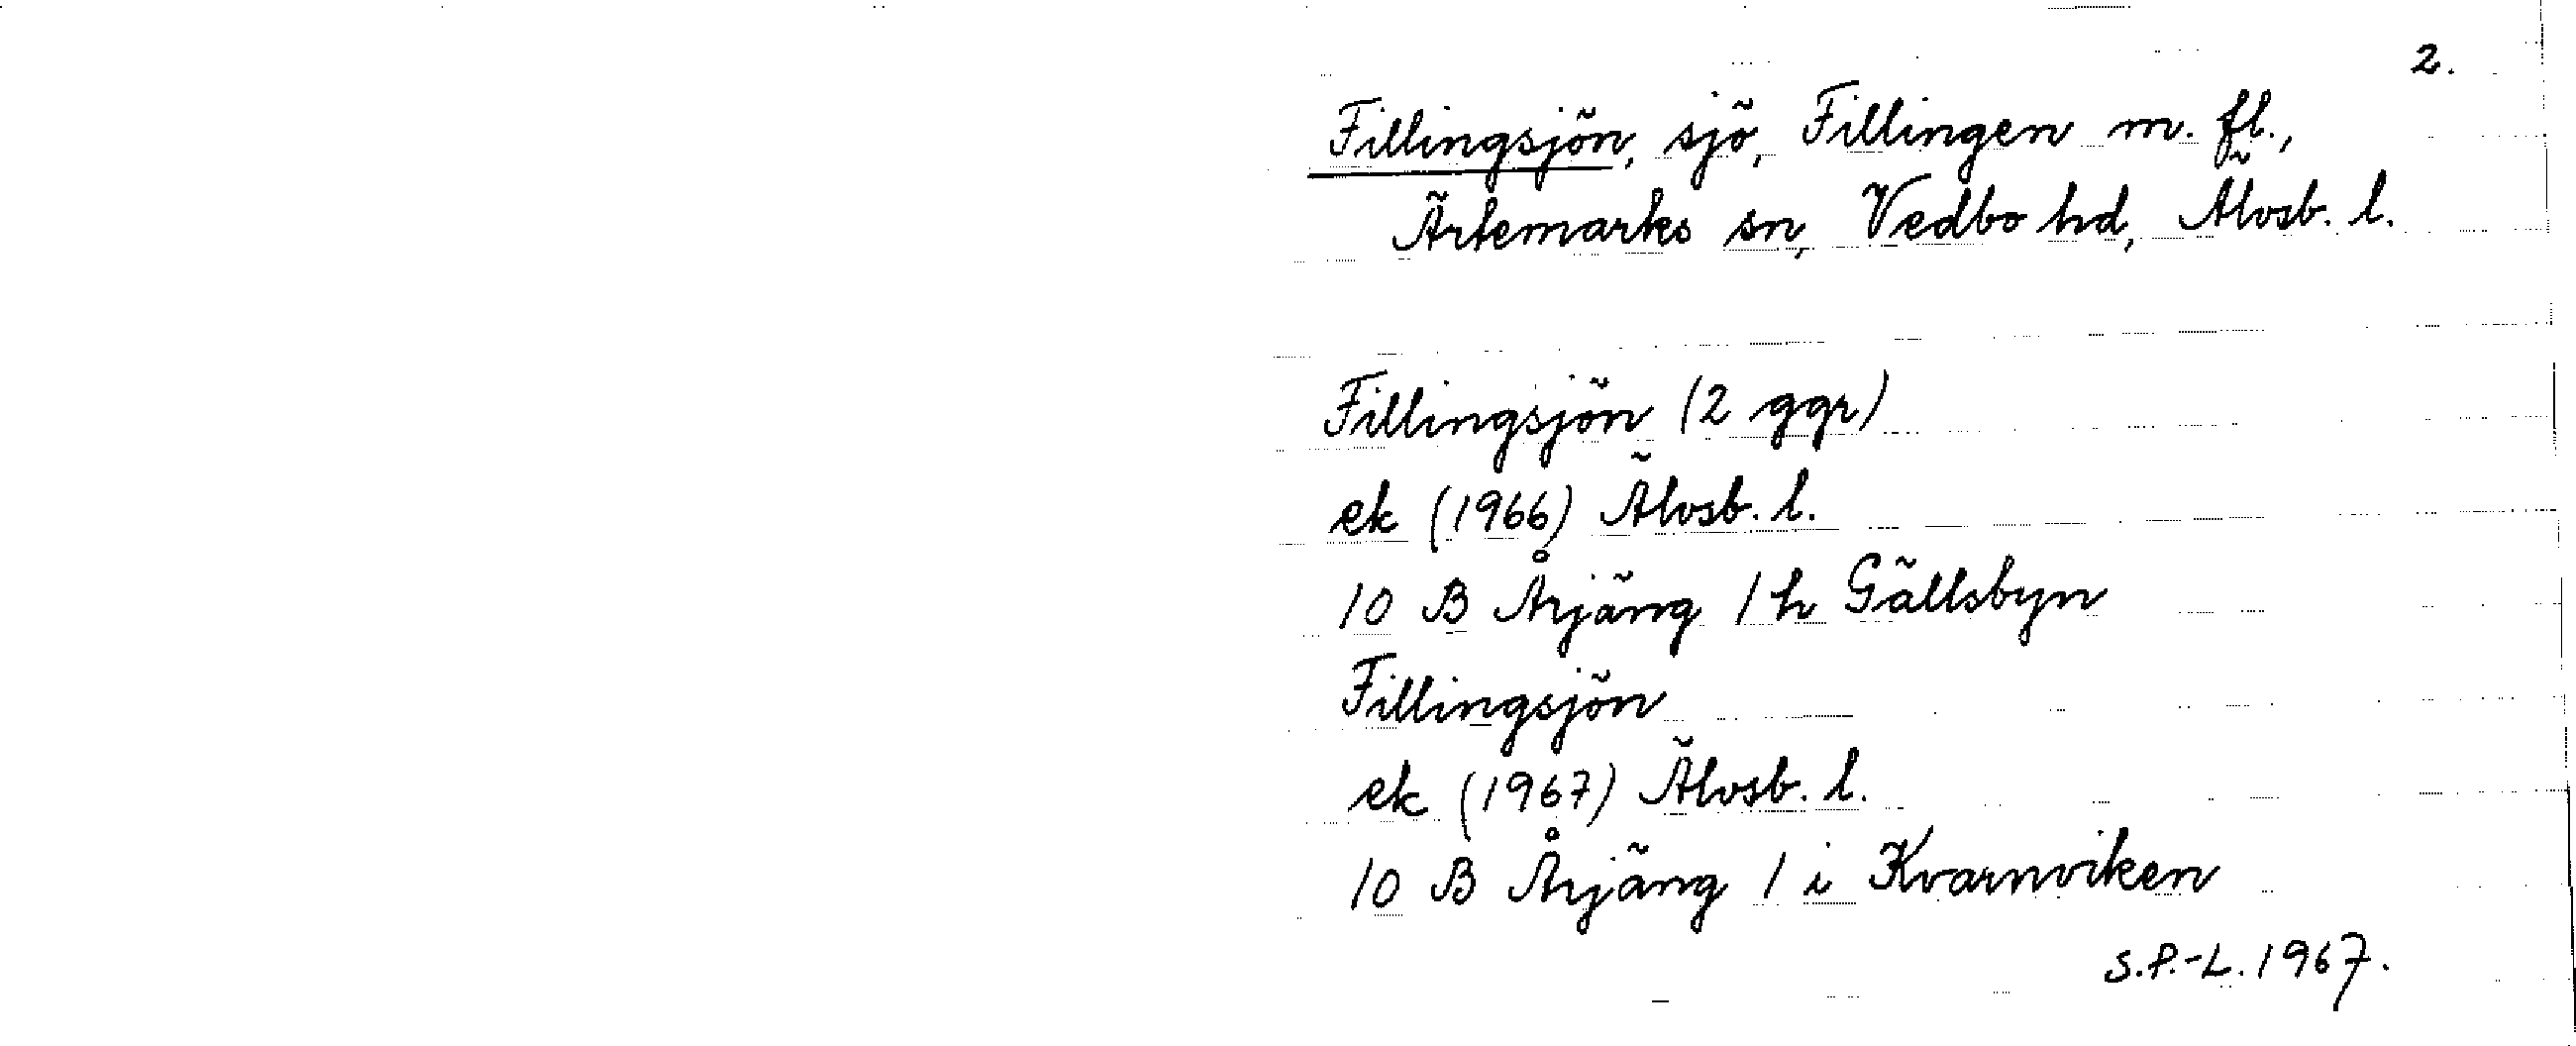 2.
Fillingsjön, sjö, Fillingen m. fl.,
Ärtemarks sn, Vedbo hd, Älvsb. l.
Fillingsjön (2 ggr)
ek (1966) Älvsb. l.
10 B Årjäng 1 h Gällsbyn
Fillingsjön
ek (1967) Älvsb. l.
10 B Årjäng 1 i Kvarnviken
S.P.-L. 1967.